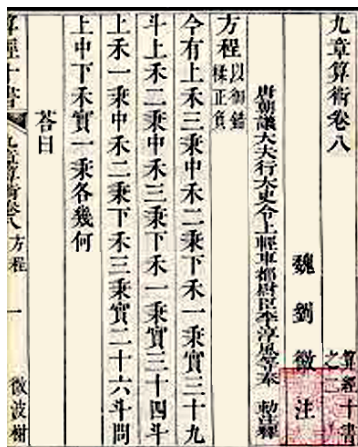 九章算術卷八
算經十書之二
魏 劉 徽 注
唐朝議大夫行太史令上輕車都尉臣李淳風等奉 勅注釋
方程 以御錯糅正負
今有上禾三秉中禾二秉下禾一秉實三十九
斗上禾二秉中禾三秉下禾一秉實三十四斗
上禾一秉中禾二秉下禾三秉實二十六斗問
上中下禾實一秉各幾何
荅曰
算經十書 九章算術卷八 方程 一 微波榭